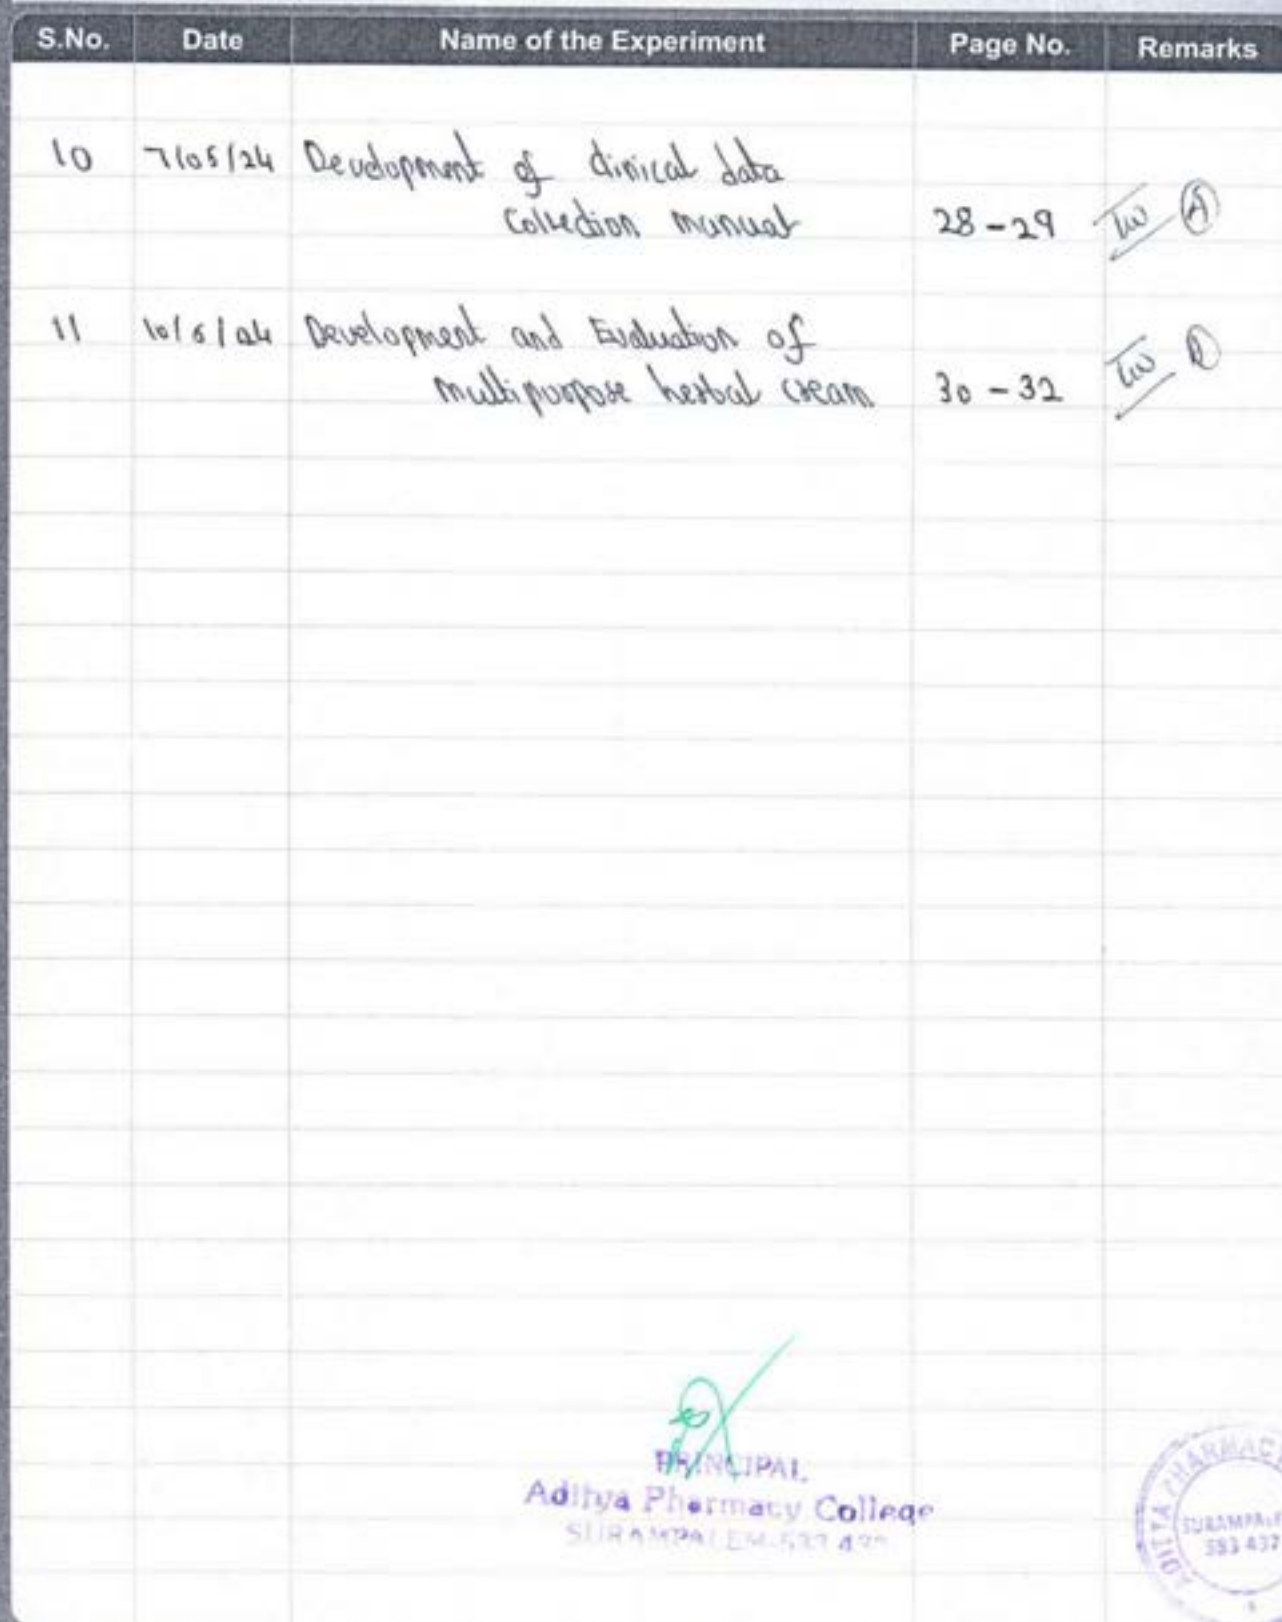 S.No. Date Name of the Experiment Page No. Remarks
10 7/05/24 Development of clinical data
Collection manual 28-29 A
11 10/5/24 Development and Evaluation of
multipurpose herbal cream 30-32
PRINCIPAL
Aditya Pharmacy College
SURAMPALEM-533 437
ADITYA PHARMACY
SURAMPALEM
533 437